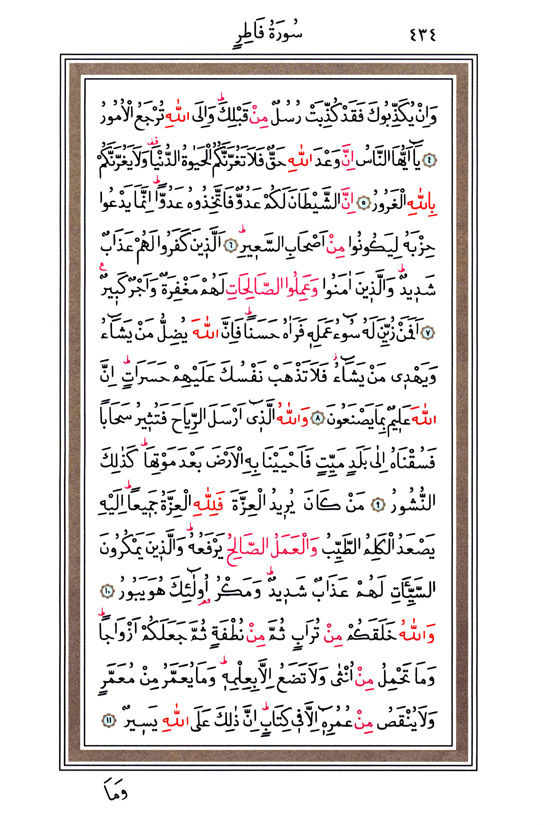 ٤٣٤ سُورَةُ فَاطِرٍ
وَاِنْ يُكَذِّبُوكَ فَقَدْ كُذِّبَتْ رُسُلٌ مِنْ قَبْلِكَۜ وَاِلَى اللّٰهِ تُرْجَعُ الْاُمُورُ
﴿٤﴾ يَٓا اَيُّهَا النَّاسُ اِنَّ وَعْدَ اللّٰهِ حَقٌّ فَلَا تَغُرَّنَّكُمُ الْحَيٰوةُ الدُّنْيَا۠ وَلَا يَغُرَّنَّكُمْ
بِاللّٰهِ الْغَرُورُ ﴿٥﴾ اِنَّ الشَّيْطَانَ لَكُمْ عَدُوٌّ فَاتَّخِذُوهُ عَدُوًّاۜ اِنَّمَا يَدْعُوا
حِزْبَهُ لِيَكُونُوا مِنْ اَصْحَابِ السَّع۪يرِۜ ﴿٦﴾ اَلَّذ۪ينَ كَفَرُوا لَهُمْ عَذَابٌ
شَد۪يدٌۜ وَالَّذ۪ينَ اٰمَنُوا وَعَمِلُوا الصَّالِحَاتِ لَهُمْ مَغْفِرَةٌ وَاَجْرٌ كَب۪يرٌ۟
﴿٧﴾ اَفَمَنْ زُيِّنَ لَهُ سُٓوءُ عَمَلِه۪ فَرَاٰهُ حَسَنًاۜ فَاِنَّ اللّٰهَ يُضِلُّ مَنْ يَشَٓاءُ
وَيَهْد۪ي مَنْ يَشَٓاءُۘ فَلَا تَذْهَبْ نَفْسُكَ عَلَيْهِمْ حَسَرَاتٍۜ اِنَّ
اللّٰهَ عَل۪يمٌ بِمَا يَصْنَعُونَ ﴿٨﴾ وَاللّٰهُ الَّذ۪ٓي اَرْسَلَ الرِّيَاحَ فَتُث۪يرُ سَحَابًا
فَسُقْنَاهُ اِلٰى بَلَدٍ مَيِّتٍ فَاَحْيَيْنَا بِهِ الْاَرْضَ بَعْدَ مَوْتِهَاۜ كَذٰلِكَ
النُّشُورُ ﴿٩﴾ مَنْ كَانَ يُر۪يدُ الْعِزَّةَ فَلِلّٰهِ الْعِزَّةُ جَم۪يعًاۜ اِلَيْهِ
يَصْعَدُ الْكَلِمُ الطَّيِّبُ وَالْعَمَلُ الصَّالِحُ يَرْفَعُهُۜ وَالَّذ۪ينَ يَمْكُرُونَ
السَّيِّـَٔاتِ لَهُمْ عَذَابٌ شَد۪يدٌۜ وَمَكْرُ اُو۬لٰٓئِكَ هُوَ يَبُورُ ﴿١٠﴾
وَاللّٰهُ خَلَقَكُمْ مِنْ تُرَابٍ ثُمَّ مِنْ نُطْفَةٍ ثُمَّ جَعَلَكُمْ اَزْوَاجًاۜ
وَمَا تَحْمِلُ مِنْ اُنْثٰى وَلَا تَضَعُ اِلَّا بِعِلْمِه۪ۜ وَمَا يُعَمَّرُ مِنْ مُعَمَّرٍ
وَلَا يُنْقَصُ مِنْ عُمُرِه۪ٓ اِلَّا ف۪ي كِتَابٍۜ اِنَّ ذٰلِكَ عَلَى اللّٰهِ يَس۪يرٌ ﴿١١﴾
وَمَا